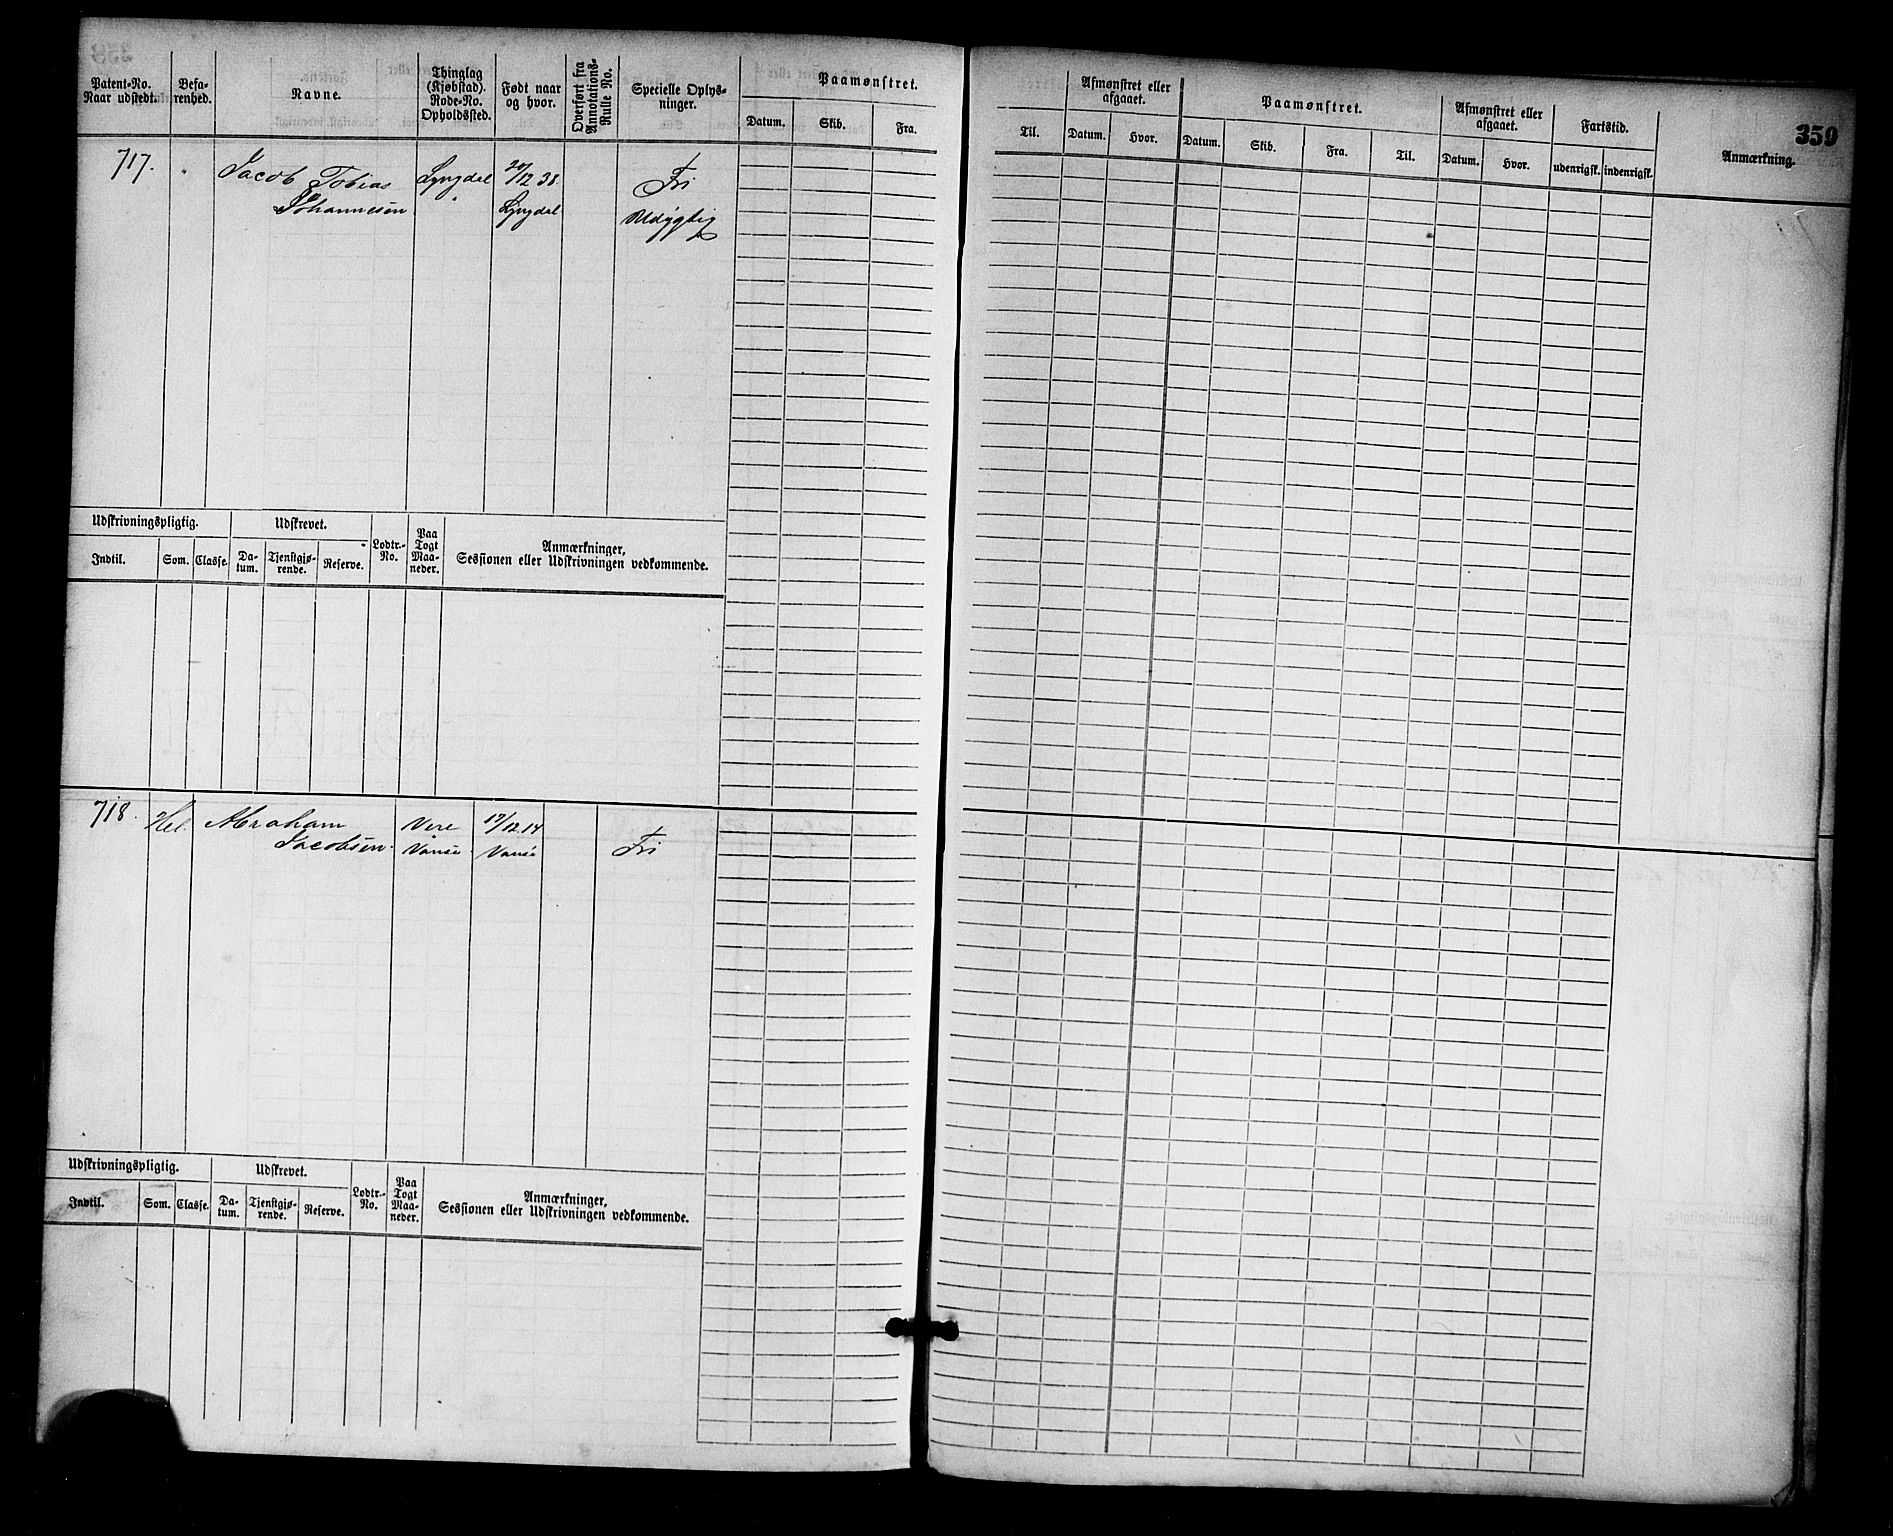 359
Patent-No. Naar udstedt.
Befarenhed.
Navne.
Thinglag (Kjøbstad). Rode-No. Opholdssted.
Født naar og hvor.
Overført fra Annotations-Rulle No.
Specielle Oplysninger.
Paamønstret.
Datum. Skib. Fra. Til.
Afmønstret eller afgaaet.
Datum. Hvor.
Paamønstret.
Datum. Skib. Fra. Til.
Afmønstret eller afgaaet.
Datum. Hvor.
Fartstid.
udenrigsk. indenrigsk.
Anmærkning.
717. Jacob Tobias Lyngdal 20/12 38. Fri
Johannesen. Lyngdal Udygtig
Udskrivningspligtig. Udskrevet. Lodtr.-No. Paa Togt Maaneder. Anmærkninger,
Sessionen eller Udskrivningen vedkommende.
Indtil. Som. Classe. Datum. Tjenstgjørende. Reserve.
718. Hel. Abraham Vere 17/12 14
Jacobsen. Vanse Vanse Fri
Udskrivningspligtig. Udskrevet. Lodtr.-No. Paa Togt Maaneder. Anmærkninger,
Sessionen eller Udskrivningen vedkommende.
Indtil. Som. Classe. Datum. Tjenstgjørende. Reserve.